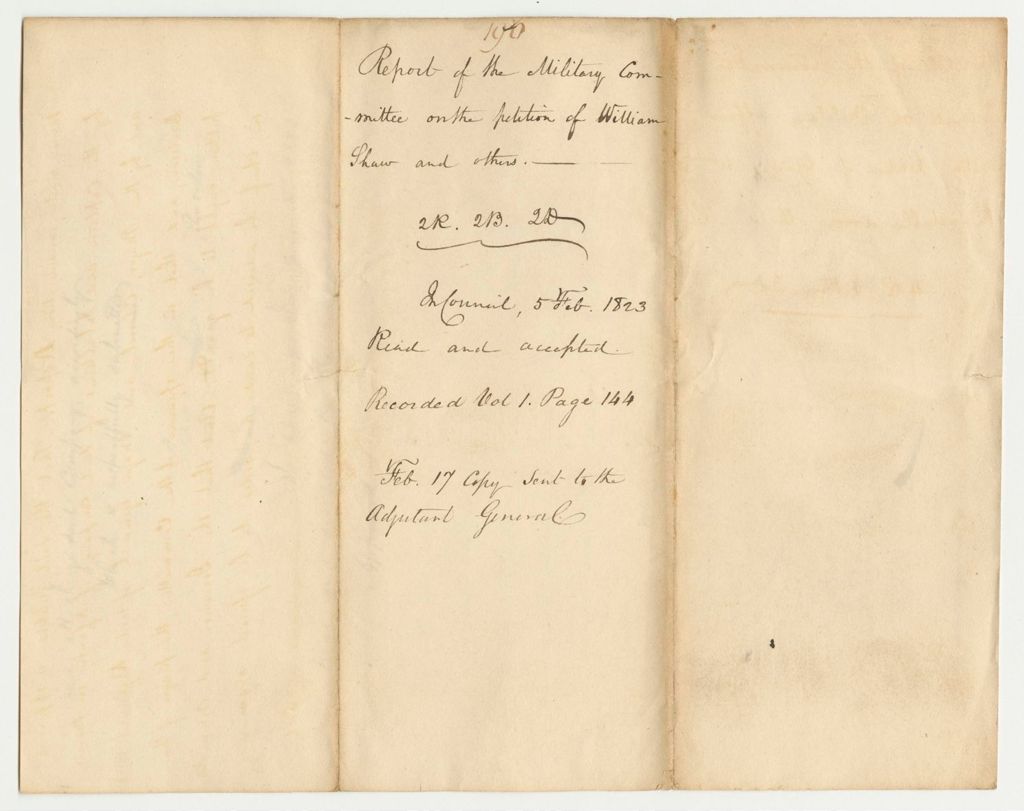 196
Report of the Military Com-
-mittee on the petition of William
Shaw and others. —
2R. 2B. 2D
In Council, 5 Feb. 1823
Read and accepted.
Recorded Vol 1. Page 144
Feb. 17 Copy sent to the
Adjutant General